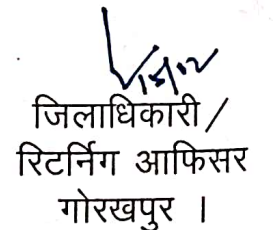 जिलाधिकारी/
रिटर्निग आफिसर
गोरखपुर ।